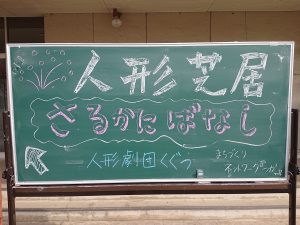 人形芝居
さるかにばなし
人形劇団くぐつ
まちづくり
ネットワーク